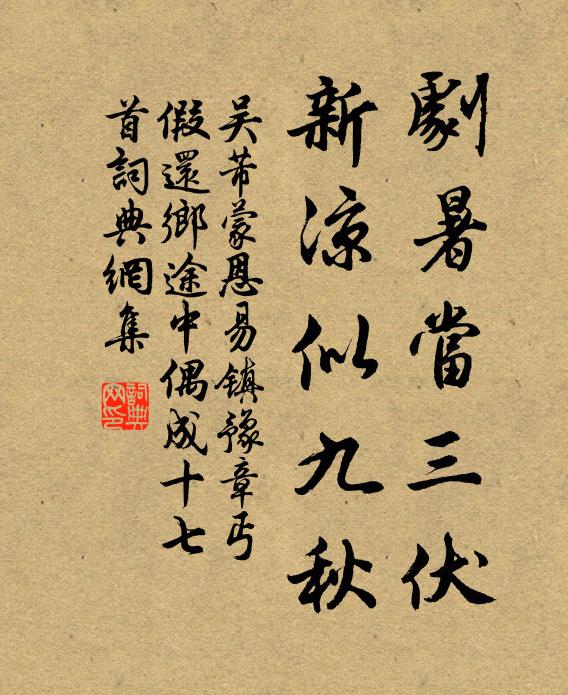 劇暑當三伏
新涼似九秋
吴芾蒙恩易鎮豫章丐
假還鄉途中偶成十七
首詞典網集
詞典网印